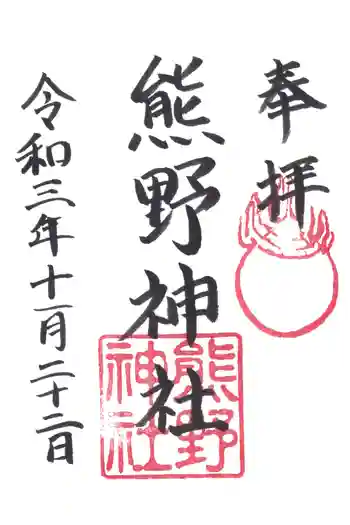 奉拝
熊野神社
令和三年十一月二十二日
熊野
神社